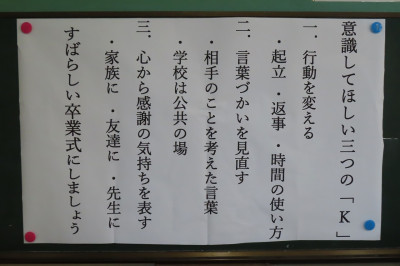 意識してほしい三つの「K」
一、行動を変える
・起立 ・返事 ・時間の使い方
二、言葉づかいを見直す
・相手のことを考えた言葉
・学校は公共の場
三、心から感謝の気持ちを表す
・家族に ・友達に ・先生に
すばらしい卒業式にしましょう